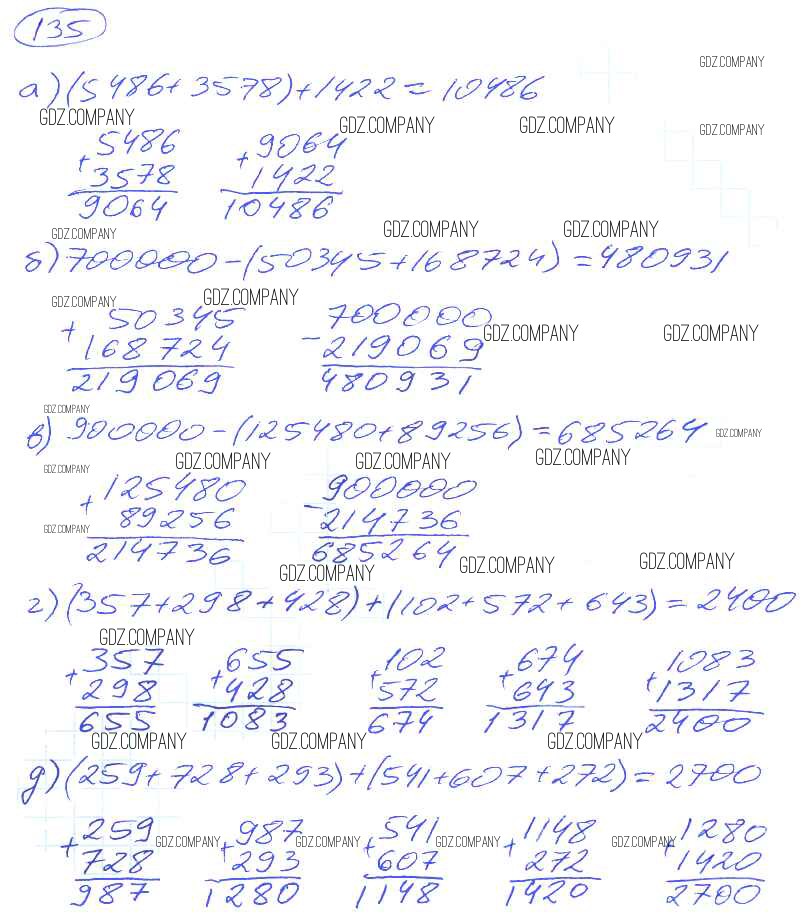 135
GDZ.COMPANY
а) (5486+3578)+1422=10486
GDZ.COMPANY GDZ.COMPANY GDZ.COMPANY GDZ.COMPANY
5486 9064
+ +
3578 1422
9064 10486
GDZ.COMPANY GDZ.COMPANY GDZ.COMPANY
б) 700000-(50345+168724)=480931
GDZ.COMPANY GDZ.COMPANY
50345 700000
+ - GDZ.COMPANY GDZ.COMPANY
168724 219069
219069 480931
GDZ.COMPANY
в) 900000-(125480+89256)=685264 GDZ.COMPANY
GDZ.COMPANY GDZ.COMPANY GDZ.COMPANY GDZ.COMPANY
125480 900000
+ -
89256 214736
GDZ.COMPANY
214736 685264
GDZ.COMPANY GDZ.COMPANY GDZ.COMPANY
г) (357+298+428)+(102+572+643)=2400
GDZ.COMPANY
357 655 102 674 1083
+ + + + +
298 428 572 643 1317
655 1083 674 1317 2400
GDZ.COMPANY GDZ.COMPANY GDZ.COMPANY
д) (259+728+293)+(541+607+272)=2700
259 987 541 1148 1280
+ GDZ.COMPANY + GDZ.COMPANY + GDZ.COMPANY + GDZ.COMPANY +
728 293 607 272 1420
987 1280 1148 1420 2700